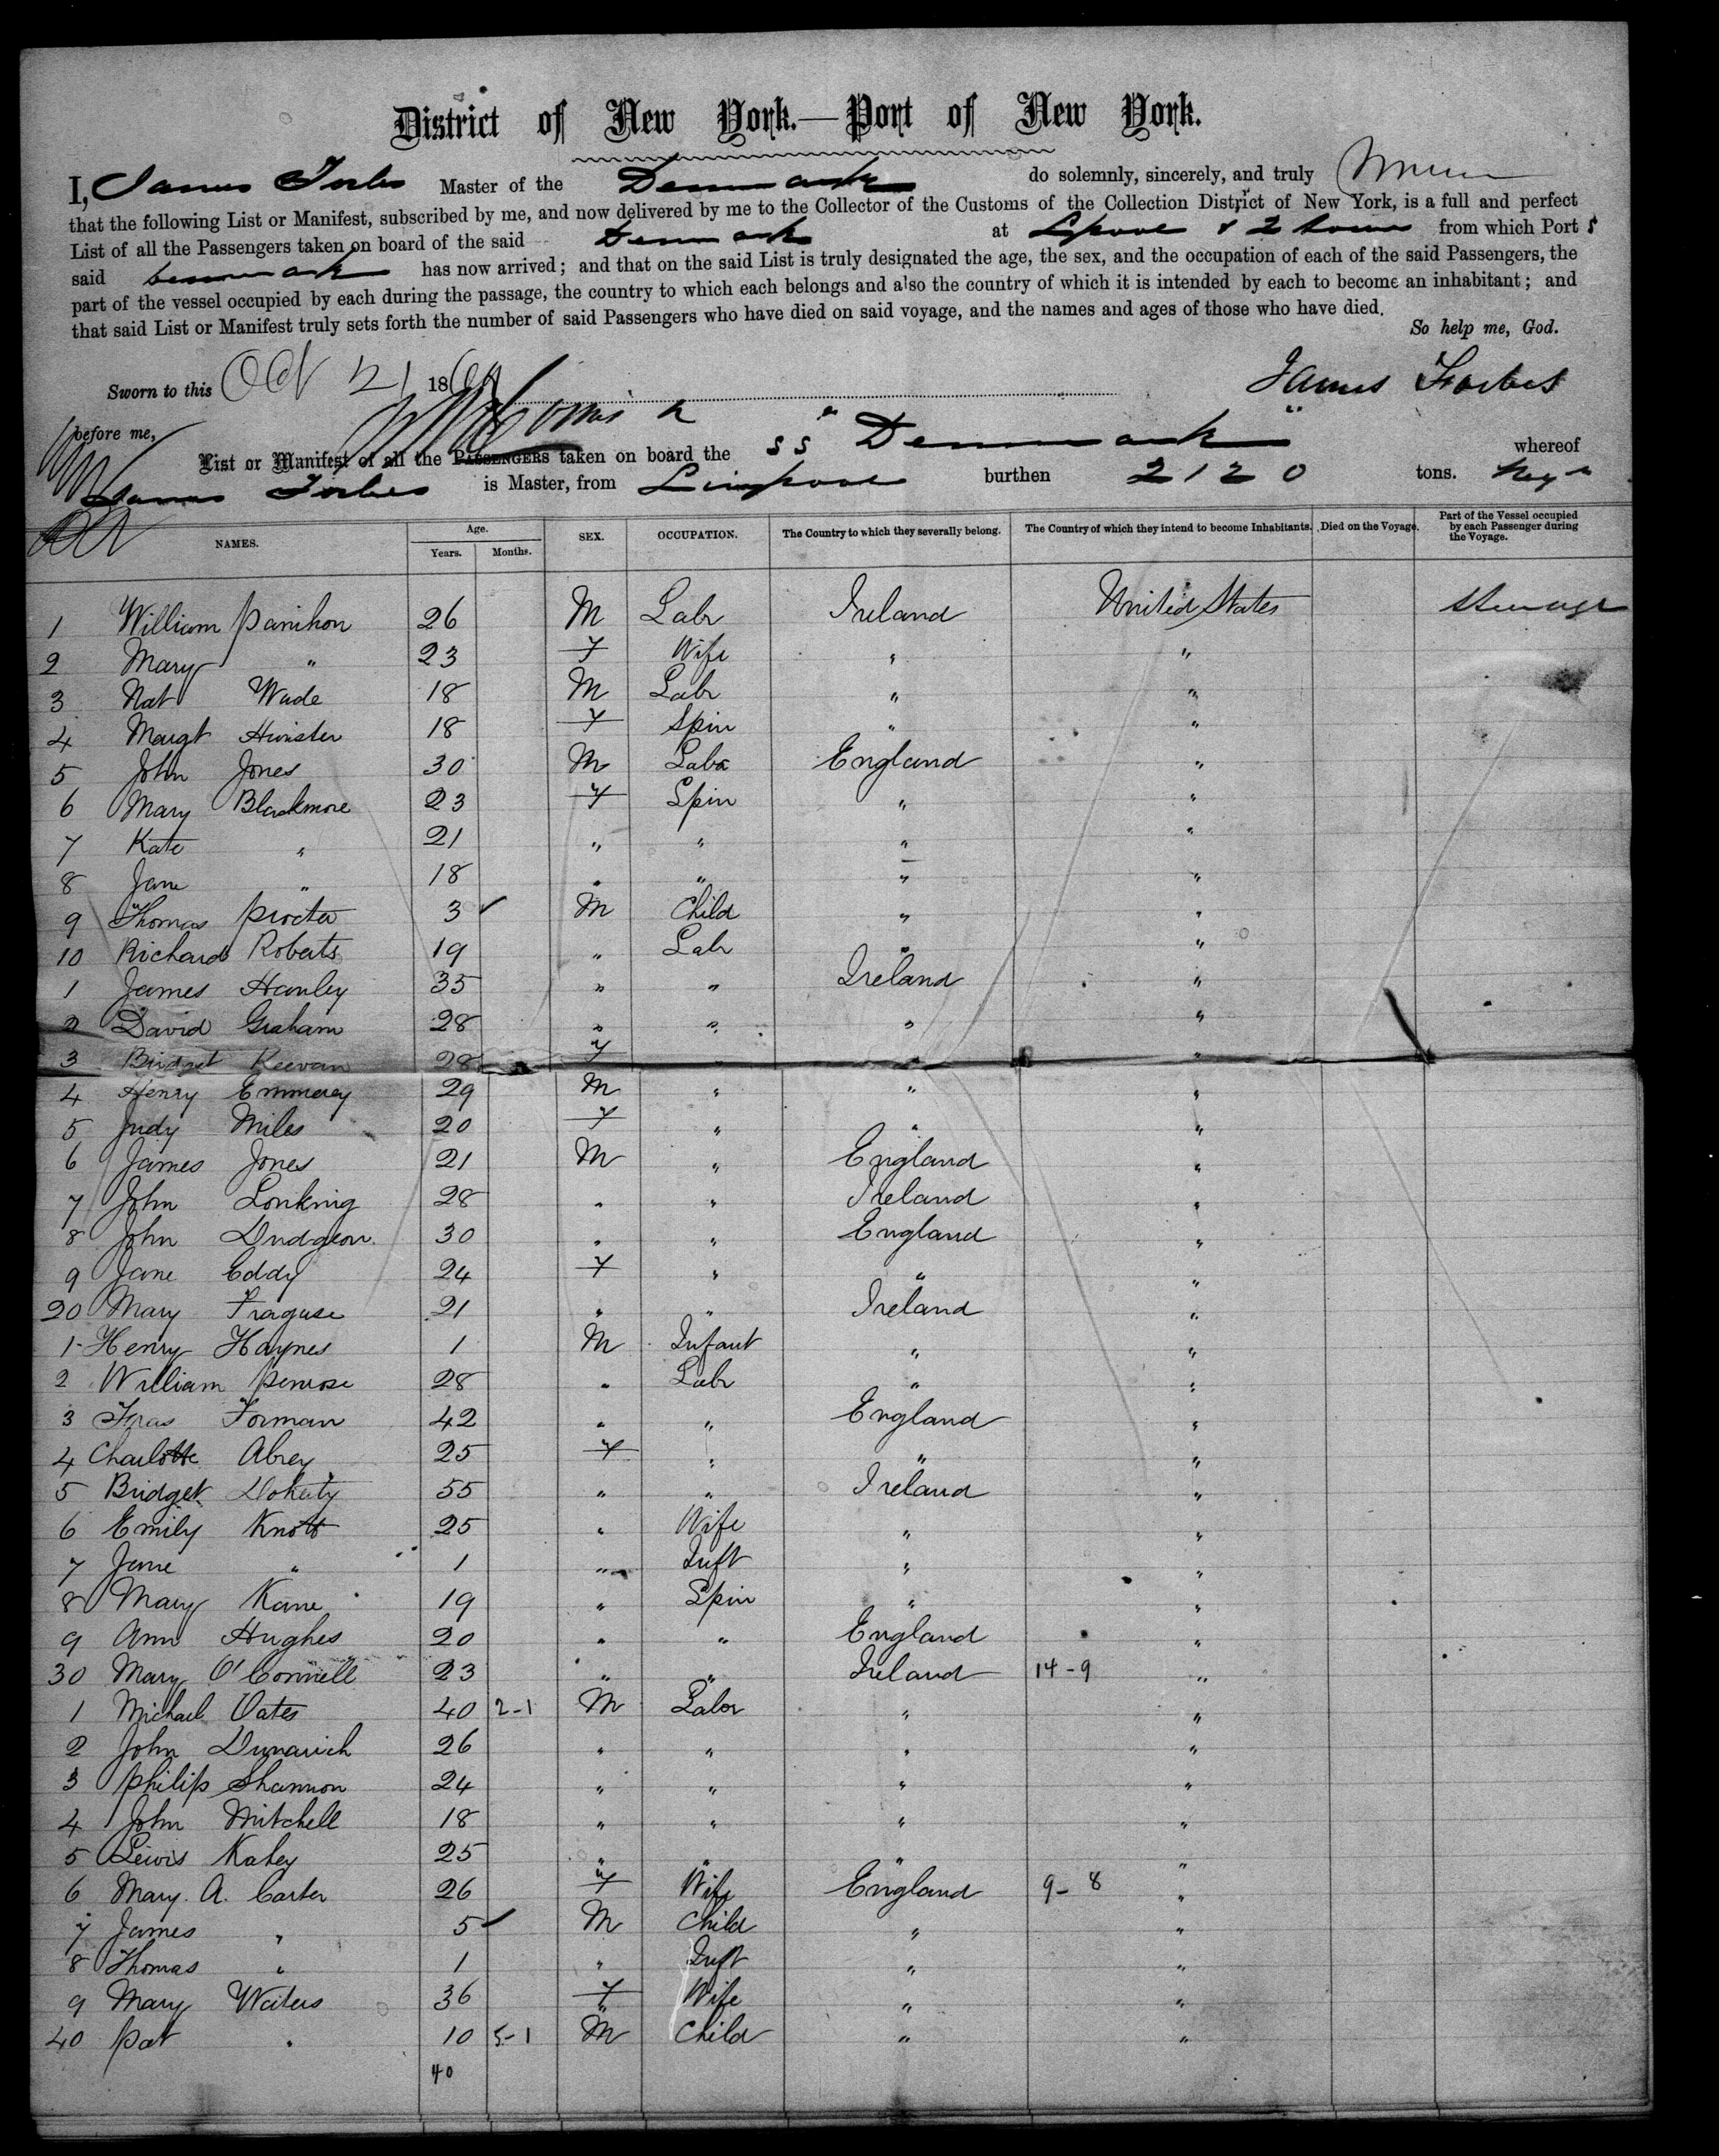 District of New York.—Port of New York.
I, James Forbes Master of the Denmark do solemnly, sincerely, and truly
that the following List or Manifest, subscribed by me, and now delivered by me to the Collector of the Customs of the Collection District of New York, is a full and perfect
List of all the Passengers taken on board of the said Denmark at Lpool & from which Port s
said Denmark has now arrived; and that on the said List is truly designated the age, the sex, and the occupation of each of the said Passengers, the
part of the vessel occupied by each during the passage, the country to which each belongs and also the country of which it is intended by each to become an inhabitant; and
that said List or Manifest truly sets forth the number of said Passengers who have died on said voyage, and the names and ages of those who have died.
So help me, God.
Sworn to this Oct 21 18 James Forbes
before me,
List or Manifest of all the PASSENGERS taken on board the SS "Denmark" whereof
James Forbes is Master, from Liverpool burthen 2120 tons.
NAMES. Age. Years. Months. SEX. OCCUPATION. The Country to which they severally belong. The Country of which they intend to become Inhabitants. Died on the Voyage. Part of the Vessel occupied by each Passenger during the Voyage.
1 William 26 M Labr Ireland United States Steerage
2 Mary " 23 F Wife " "
3 Nat Wade 18 M Labr " "
4 Margt 18 F Spin " "
5 John Jones 30 M Labr England "
6 Mary Blackmore 23 F Spin " "
7 Kate " 21 " " " "
8 Jane " 18 " " " "
9 Thomas Procter 3 M Child " "
10 Richard Roberts 19 " Labr " "
1 James Hanley 35 " " Ireland "
2 David Graham 28 " " " "
3 Bridget Keevan 28 F " " "
4 Henry Emmerey 29 M " " "
5 Judy Miles 20 F " " "
6 James Jones 21 M " England "
7 John Lonking 28 " " Ireland "
8 John Dudgeon 30 " " England "
9 Jane Eddy 24 F " " "
20 Mary 21 " " Ireland "
1 Henry Haynes 1 M Infant " "
2 William Penrose 28 " Labr " "
3 Forman 42 " " England "
4 Charlotte Abrey 25 F " " "
5 Bridget Doherty 55 " " Ireland "
6 Emily Knott 25 " Wife " "
7 Jane " 1 " Inft " "
8 Mary Kane 19 " Spin " "
9 Ann Hughes 20 " " England "
30 Mary O'Connell 23 " " Ireland 14-9 "
1 Michael Oates 40 2-1 M Labor " "
2 John 26 " " " "
3 Philip Shannon 24 " " " "
4 John Mitchell 18 " " " "
5 Lewis Kahey 25 " " " "
6 Mary. A. Carter 26 F Wife England 9-8 "
7 James " 5 M Child " "
8 Thomas " 1 " Inft " "
9 Mary Waters 36 F Wife " "
40 Pat " 10 5-1 M Child " "
40